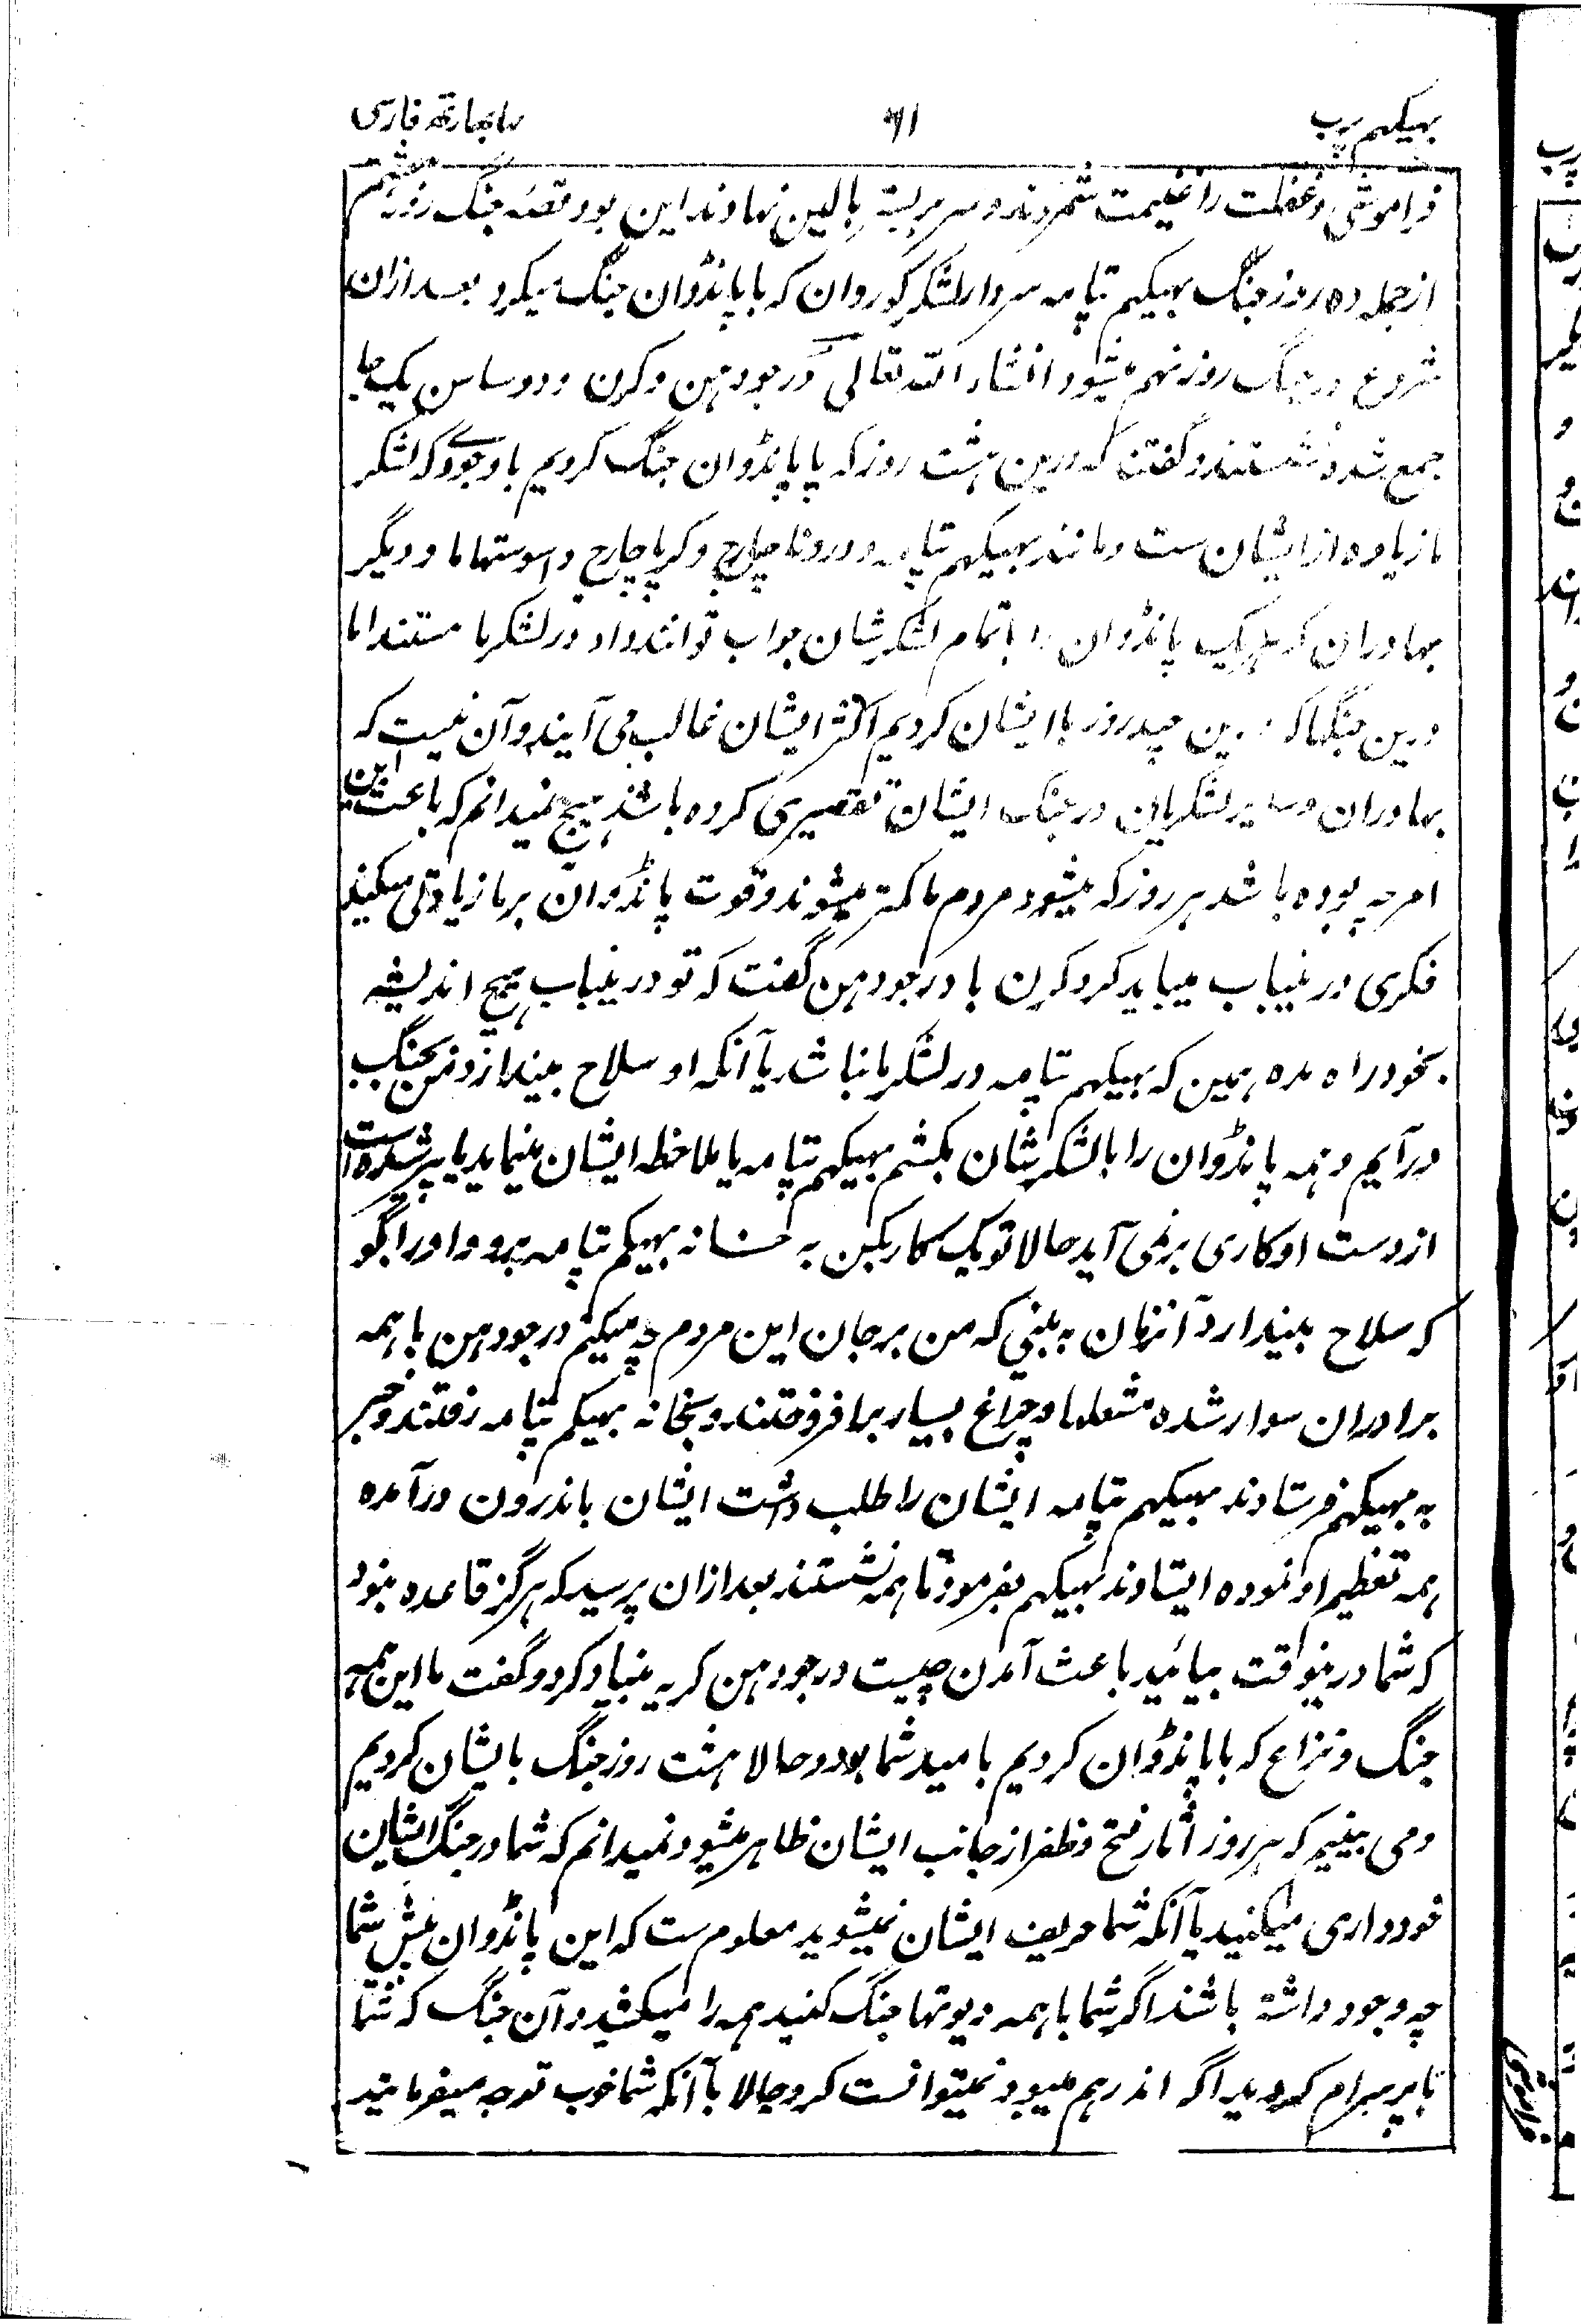 بهیکهم پرب ۶۱ مهابهارتهه فارسی
فراموشی و غفلت را غنیمت شمردند و سر بر بستر بالین نهادند این بود قصه جنگ روز هشتم
از جمله ده روز جنگ بهیکم پتامه سردار لشکر کوروان که با پانڈوان جنگ میکرد بعد ازان
شروع در جنگ روز نهم میشود انشاء الله تعالی درجودهن و کرن و دوساسن یک جا
جمع شده نشستند و گفتند که درین هشت روز که با پانڈوان جنگ کردیم باوجودیکه لشکر
ما زیاده از ایشان ست و مانند بهیکهم پتامه و درونا چارج و کرپا چارج و اسوستهاما و دیگر
بهادران که هر یک پانڈوان را با تمام لشکر شان جواب توانند داد در لشکر ما هستند اما
درین جنگها که درین چند روز با ایشان کردیم اکثر ایشان غالب می آیند و آن نیست که
بهادران و سایر لشکریان در جنگ ایشان تقصیری کرده باشند هیچ نمیدانم که باعث این
امر چه بوده باشد هر روز که میشود مردم ما کمتر میشوند و قوت پانڈوان بر ما زیادتی میکند
فکری درینباب میباید کرد کرن با درجودهن گفت که تو درینباب هیچ اندیشه
بخود راه مده همین که بهیکهم پتامه در لشکر ما نباشد یا آنکه او سلاح بیندازد من بجنگ
درآیم و همه پانڈوان را با لشکر شان بکشم بهیکهم پتامه یا ملاحظه ایشان مینماید یا پیر شده است
از دست او کاری بر نمی آید حالا تو یک کار بکن به خانه بهیکم پتامه برو و او را بگو
که سلاح بیندازد آنزمان به بینی که من بر جان این مردم چه میکنم درجودهن با همه
برادران سوار شده مشعلها و چراغ بسیار برافروختند و بخانه بهیکم پتامه رفتند و خبر
به بهیکهم فرستادند بهیکهم پتامه ایشان را طلب داشت ایشان باندرون درآمده
همه تعظیم او نموده ایستادند بهیکهم بفرمود تا همه نشستند بعد ازان پرسید که هرگز قاعده نبود
که شما درینوقت بیائید باعث آمدن چیست درجودهن گریه بنیاد کرد و گفت ما این همه
جنگ و نزاع که با پانڈوان کردیم بامید شما بود و حالا هشت روز جنگ بایشان کردیم
و می بینیم که هر روز آثار فتح و ظفر از جانب ایشان ظاهر میشود نمیدانم که شما در جنگ ایشان
خودداری میکنید یا آنکه شما حریف ایشان نمیشوید معلوم ست که این پانڈوان پیش شما
چه وجود داشته باشند اگر شما با همه دیوتها جنگ کنید همه را میکشید و آن جنگ که شما
با پرسرام کرده اید اگر اندر هم میبود نمیتوانست کرد حالا یا آنکه شما خوب توجه میفرمائید